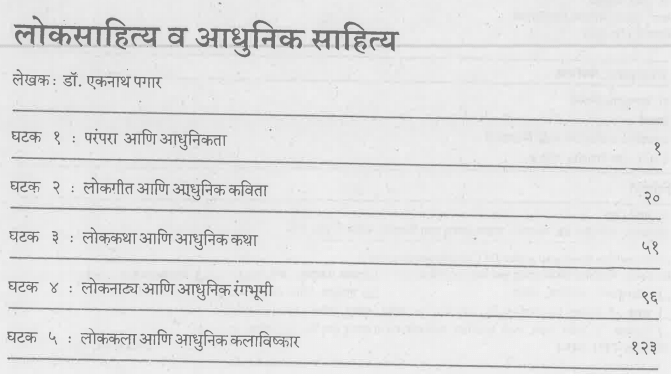 लोकसाहित्य व आधुनिक साहित्य
लेखक: डॉ. एकनाथ पगार
घटक १ : परंपरा आणि आधुनिकता १
घटक २ : लोकगीत आणि आधुनिक कविता २०
घटक ३ : लोककथा आणि आधुनिक कथा ५१
घटक ४ : लोकनाट्य आणि आधुनिक रंगभूमी ९६
घटक ५ : लोककला आणि आधुनिक कलाविष्कार १२३